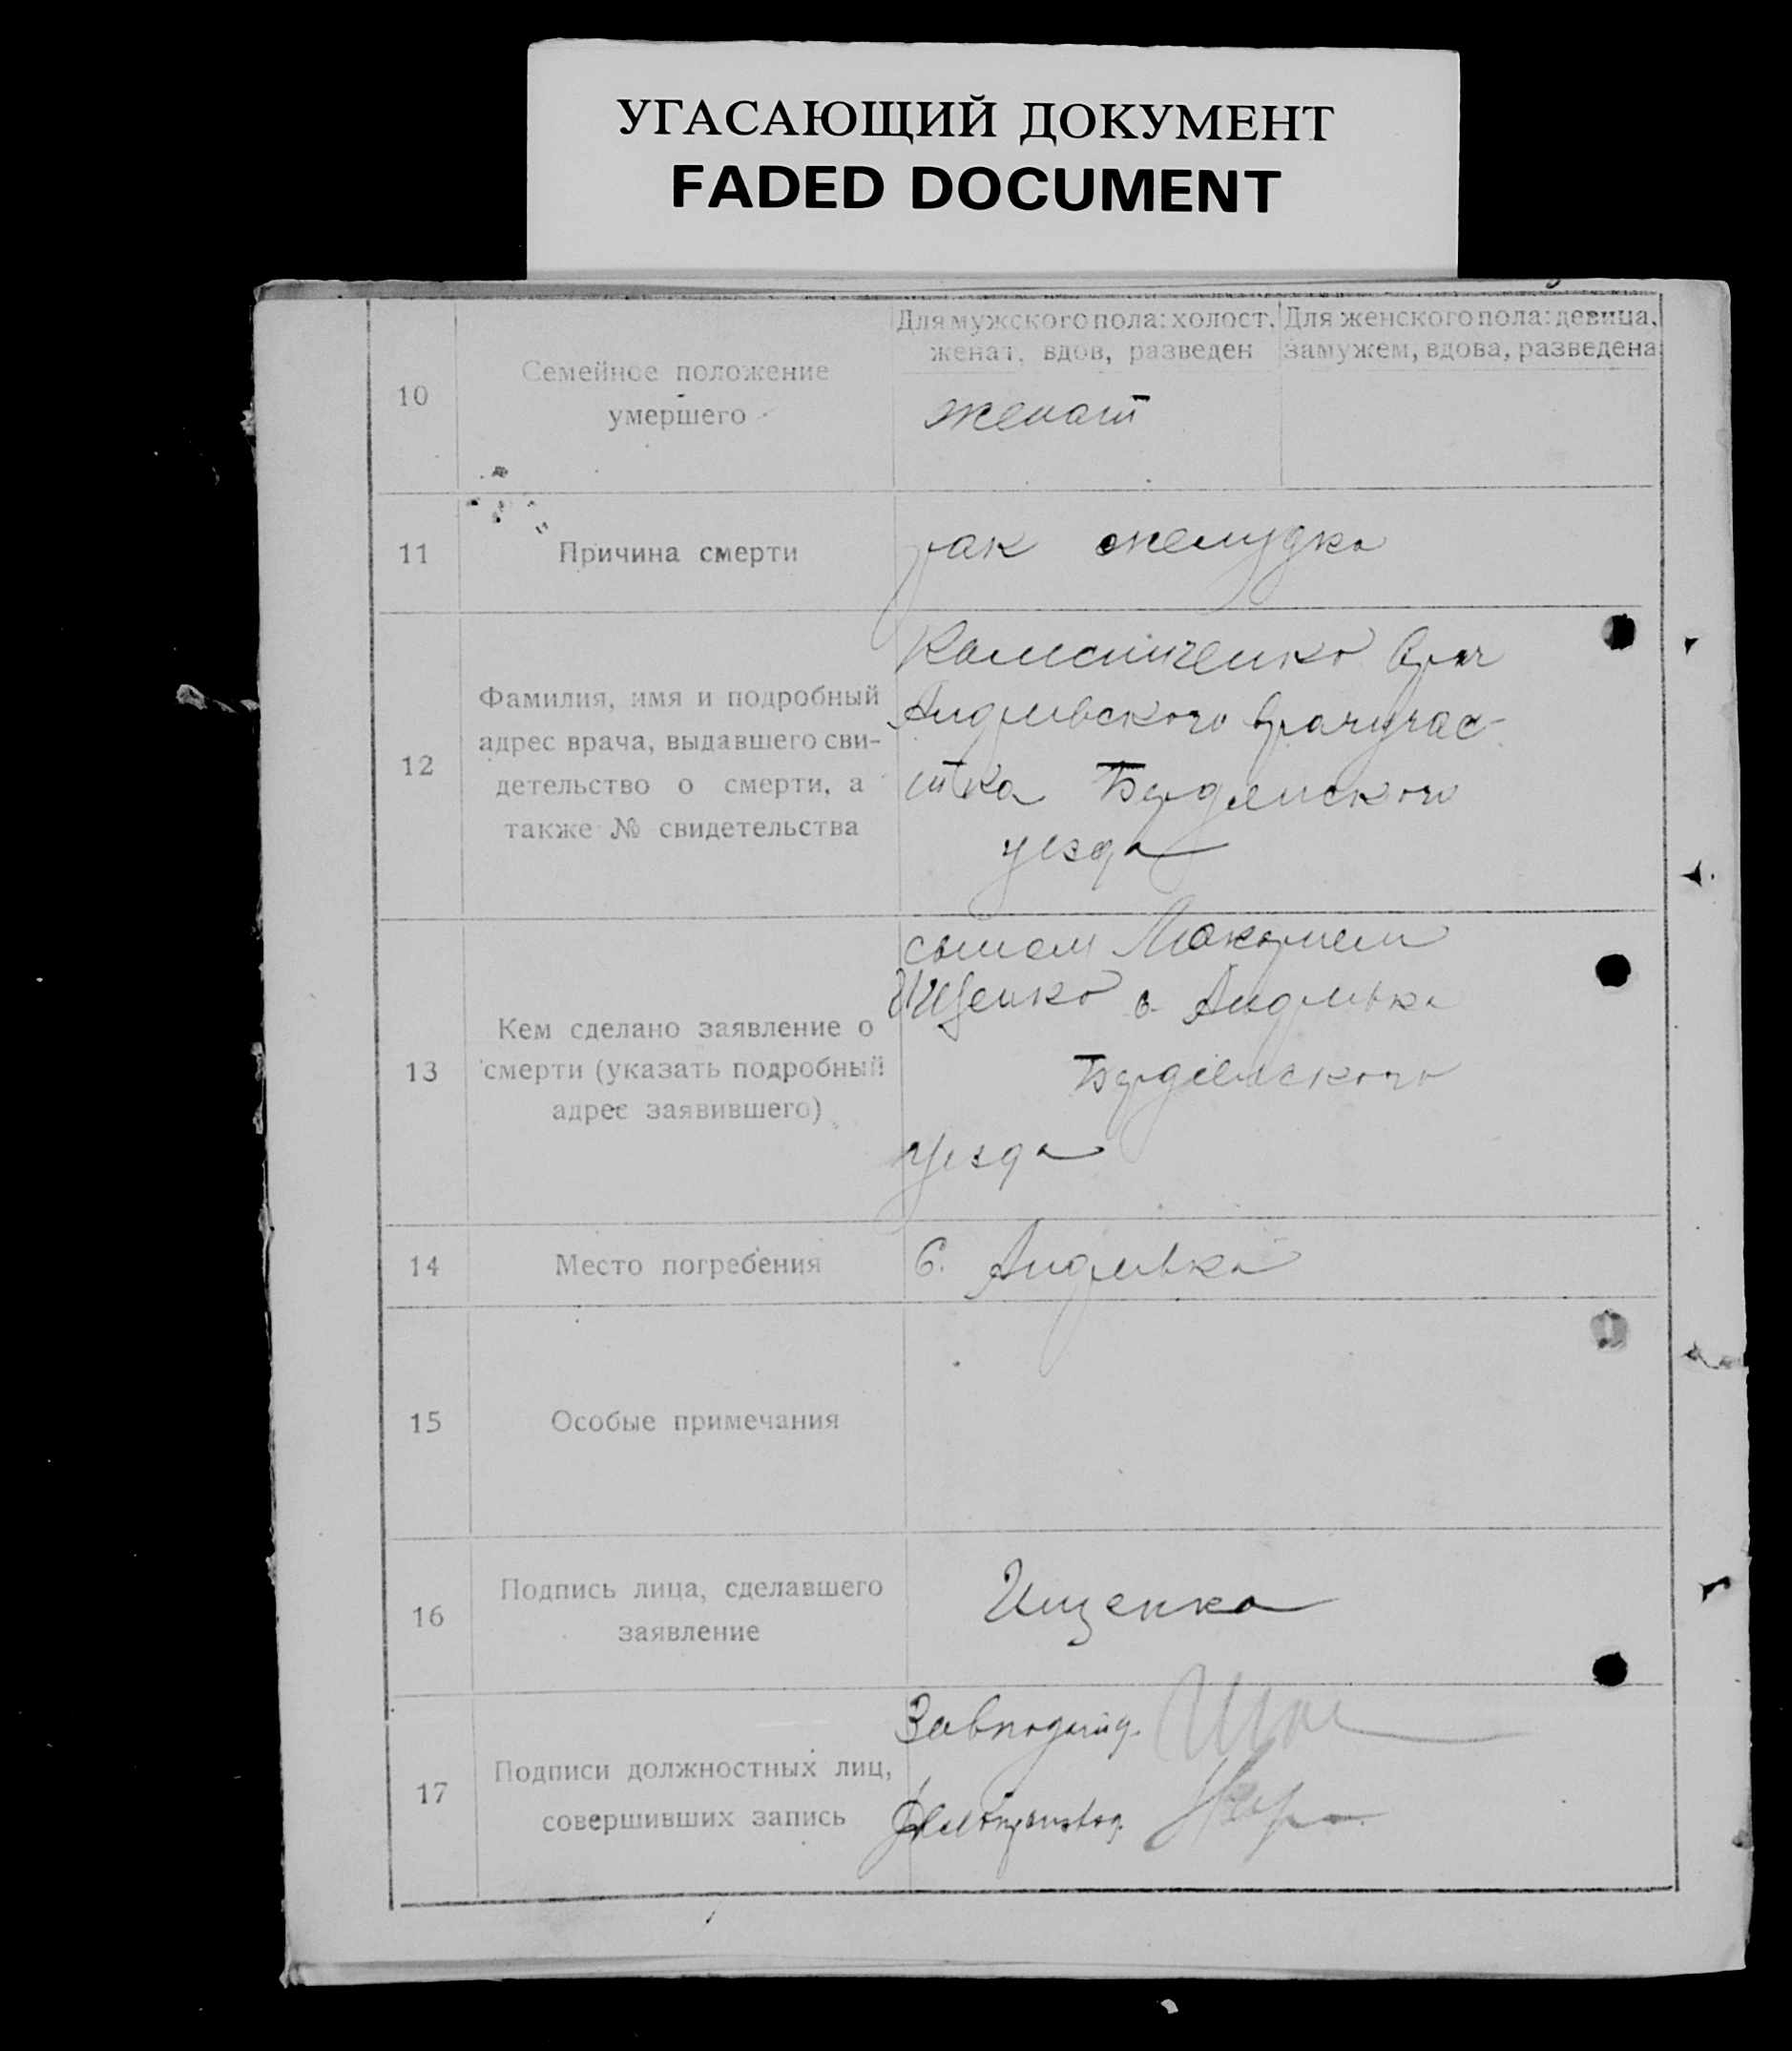 УГАСАЮЩИЙ ДОКУМЕНТ
FADED DOCUMENT
10
Семейное положение
умершего
Для мужского пола: холост,
женат, вдов, разведен
Для женского пола: девица,
замужем, вдова, разведена
женат
11
Причина смерти
рак желудка
12
Фамилия, имя и подробный
адрес врача, выдавшего сви-
детельство о смерти, а
также № свидетельства
врач
Андреевского врачучас-
тка Бердянского
уезда
13
Кем сделано заявление о
смерти (указать подробный
адрес заявившего)
сыном Макарием
Ищенко с. Андреевка
Бердянского
уезда
14
Место погребения
С. Андреевка
15
Особые примечания
16
Подпись лица, сделавшего
заявление
Ищенко
17
Подписи должностных лиц,
совершивших запись